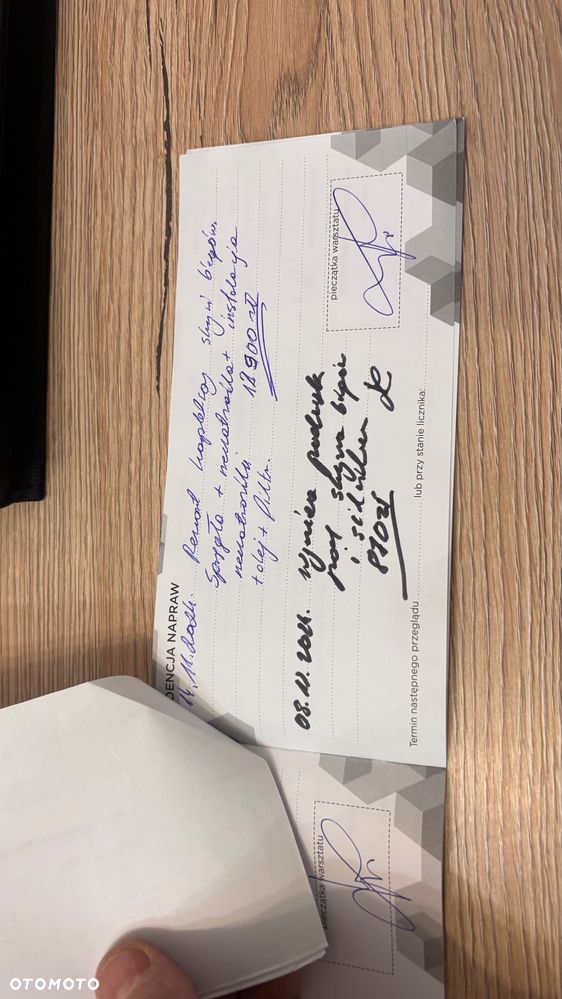 DENCJA NAPRAW
14.11.2024. Remont kompletny skrzyni biegów.
Sprzęgło + mechatronika + instalacja
mechatroniki 18.900 zł
+ olej + filtr.
08.12.2024. wymiana poduszek
pod skrzynią biegów
i silnikiem
870 zł
pieczątka warsztatu
Termin następnego przeglądu
lub przy stanie licznika:
pieczątka warsztatu
OTOMOTO